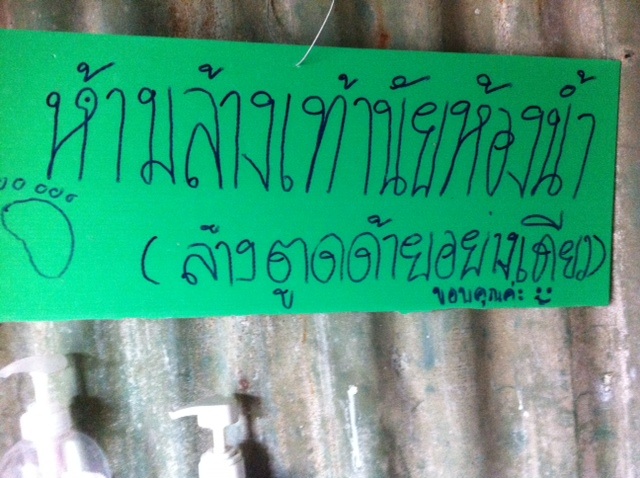 ห้ามล้างเท้านัยห้องน้ำ
(ล้างตูดด้ายอย่างเดียว)
ขอบคุณค่ะ